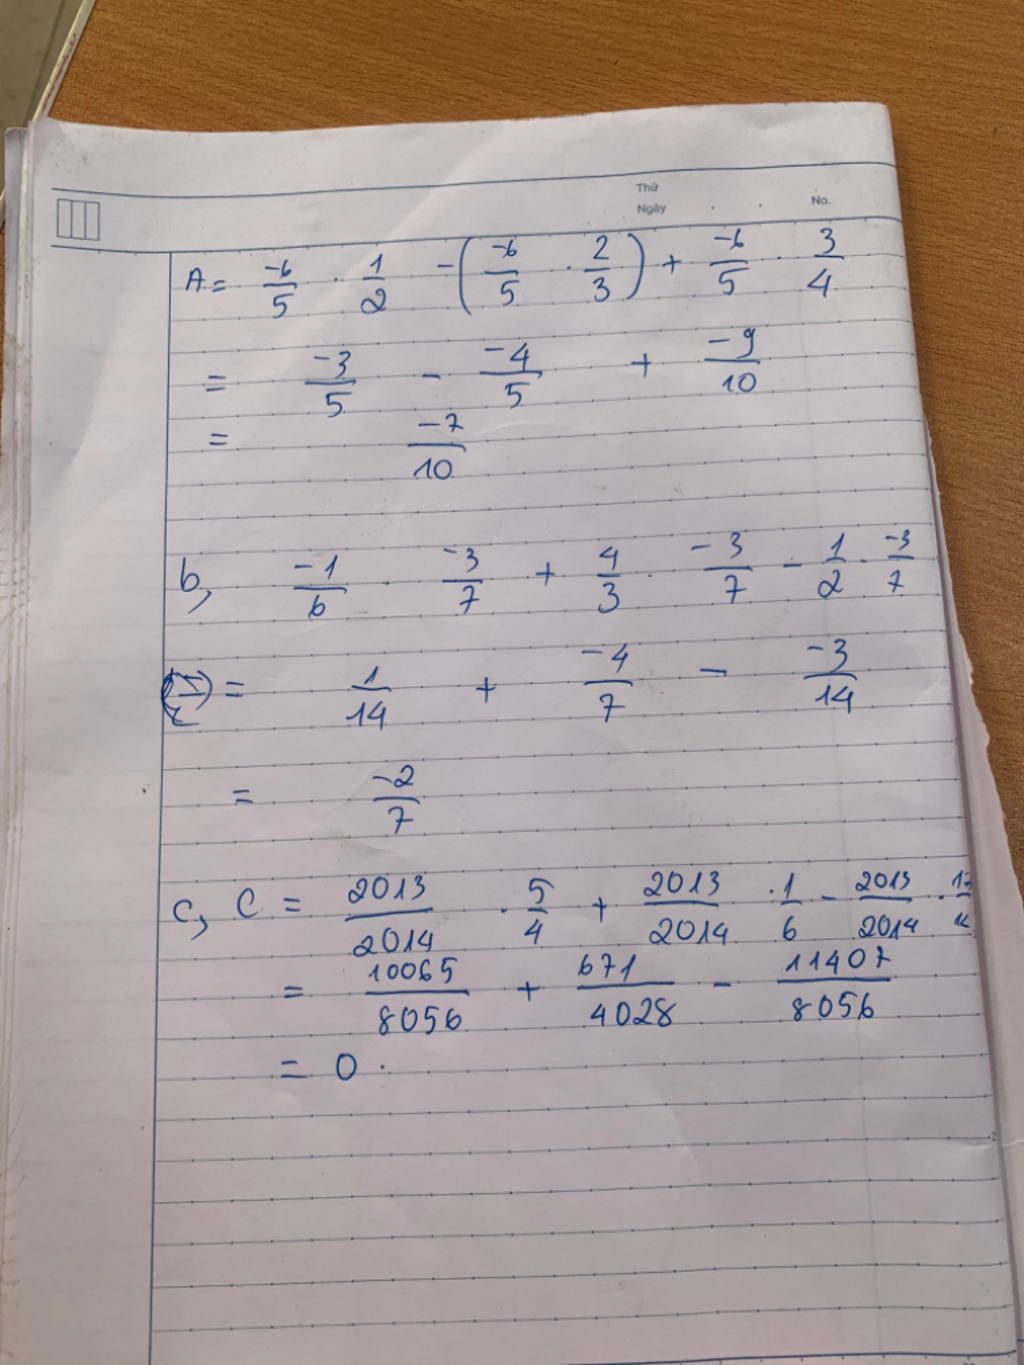 Thứ
Ngày . . No.
A = -6/5 . 1/2 - (-6/5 . 2/3) + -6/5 . 3/4
= -3/5 - -4/5 + -9/10
= -7/10
b, -1/6 . -3/7 + 4/3 . -3/7 - 1/2 . -3/7
= 1/14 + -4/7 - -3/14
= -2/7
c, C = 2013/2014 . 5/4 + 2013/2014 . 1/6 - 2013/2014 .
= 10065/8056 + 671/4028 - 11407/8056
= 0 .